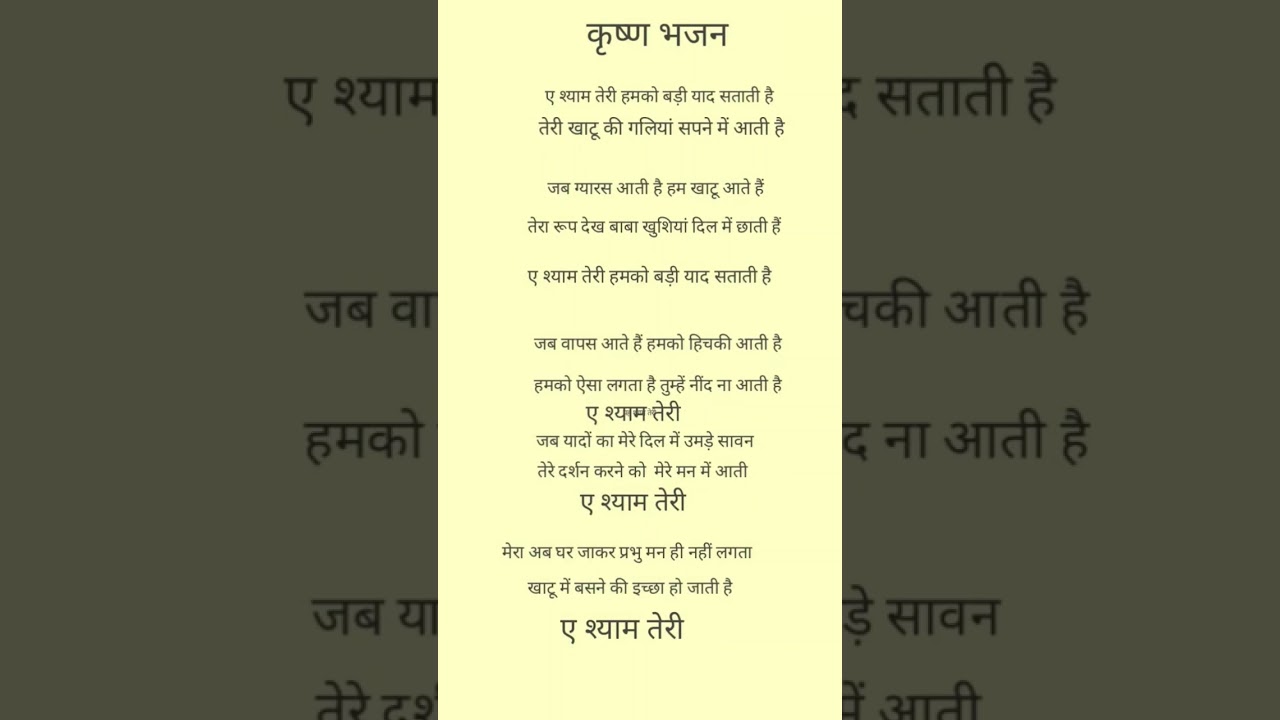 कृष्ण भजन
ए श्याम तेरी हमको बड़ी याद सताती है
तेरी खाटू की गलियां सपने में आती है
जब ग्यारस आती है हम खाटू आते हैं
तेरा रूप देख बाबा खुशियां दिल में छाती हैं
ए श्याम तेरी हमको बड़ी याद सताती है
जब वापस आते हैं हमको हिचकी आती है
हमको ऐसा लगता है तुम्हें नींद ना आती है
ए श्याम तेरी
जब यादों का मेरे दिल में उमड़े सावन
तेरे दर्शन करने को मेरे मन में आती
ए श्याम तेरी
मेरा अब घर जाकर प्रभु मन ही नहीं लगता
खाटू में बसने की इच्छा हो जाती है
ए श्याम तेरी